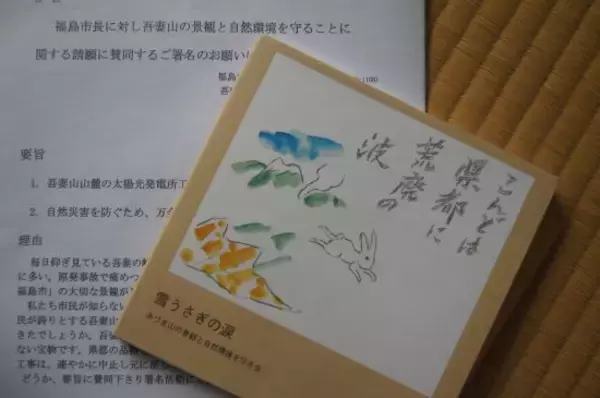 福島市長に対し吾妻山の景観と自然環境を守ることに
関する請願に賛同するご署名のお願い
福島
要旨
1. 吾妻山山麓の太陽光発電所工
2. 自然災害を防ぐため、万
理由
毎日仰ぎ見ている吾妻の
に多い。原発事故で痛めつ
福島市」の大切な景観が
私たち市民が知らない
民が誇りとする吾妻山
きたでしょうか。吾
ない宝物です。県都の品
工事は、速やかに中止し元に
どうか、要旨に賛同下さり署名活動に
こんどは
県都に
荒廃の
波
雪うさぎの涙
あづま山の景観と自然環境を守る会